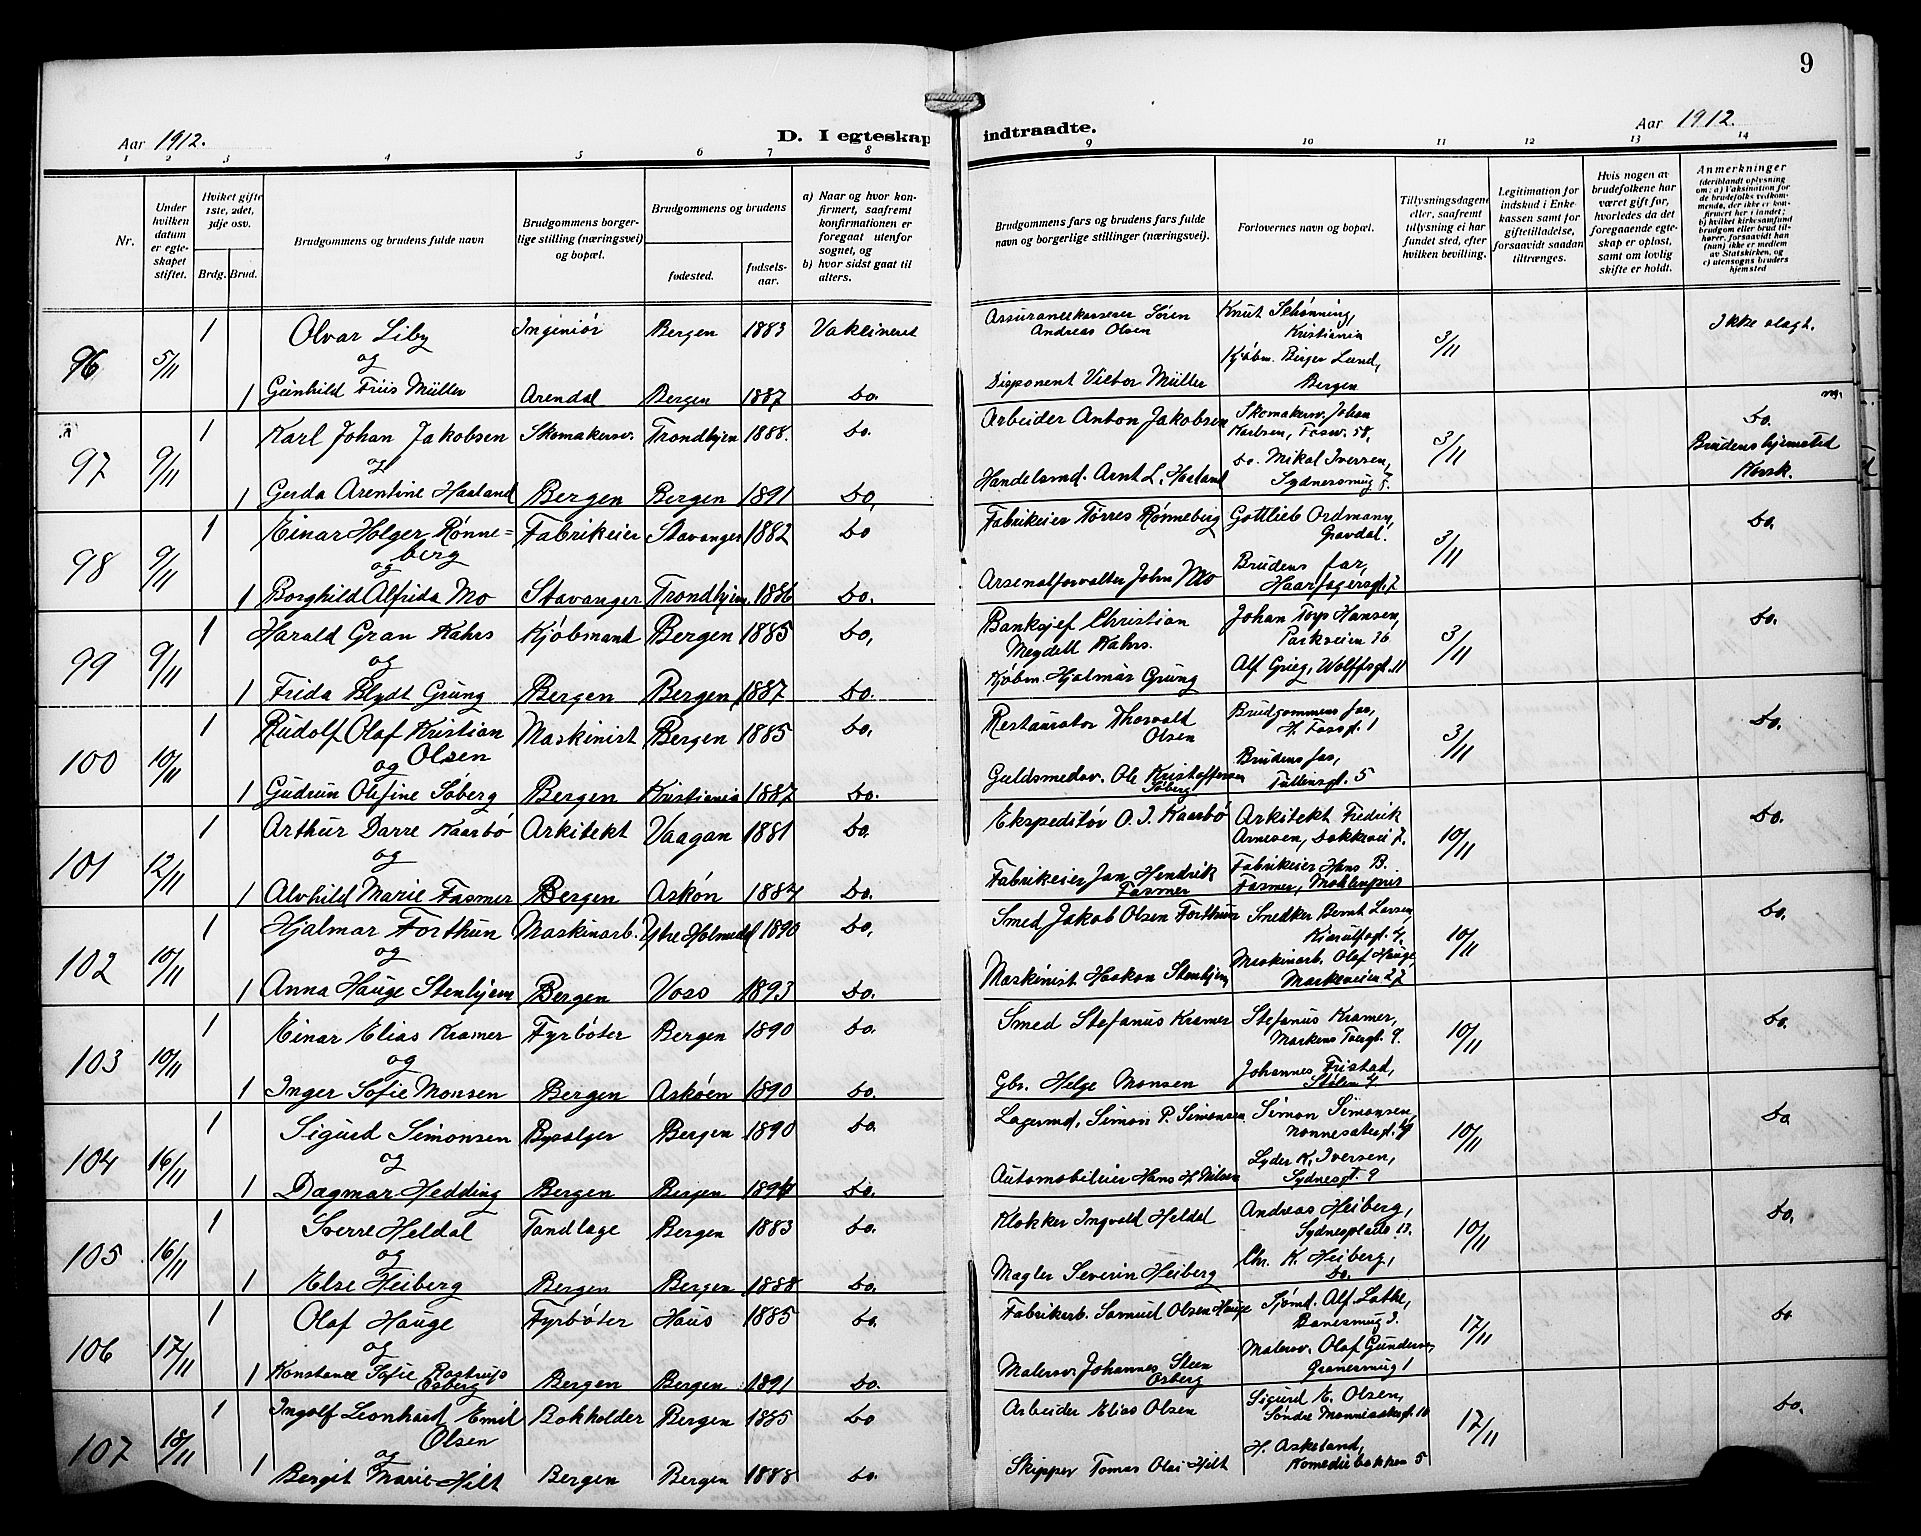 9
Aar 1912.
D. I egteskap indtraadte.
Aar 1912.
1 2 3 4 5 6 7 8 9 10 11 12 13 14
Nr.
Under hvilken datum er egteskapet stiftet.
Hvilket gifte 1ste, 2det, 3dje osv.
Brdg. Brud.
Brudgommens og brudens fulde navn
Brudgommens borgerlige stilling (næringsvei) og bopæl.
Brudgommens og brudens
fødested.
fødselsaar.
a) Naar og hvor konfirmert, saafremt konfirmationen er foregaat utenfor sognet, og
b) hvor sidst gaat til alters.
Brudgommens fars og brudens fars fulde navn og borgerlige stillinger (næringsvei).
Forlovernes navn og bopæl.
Tillysningsdagene eller, saafremt tillysning ei har fundet sted, efter hvilken bevilling.
Legitimation for indskud i Enkekassen samt for giftetilladelse, forsaavidt saadan tiltrænges.
Hvis nogen av brudefolkene har været gift før, hvorledes da det foregaaende egteskap er opløst, samt om lovlig skifte er holdt.
Anmerkninger
(deriblandt oplysning om: a) Vaksination for de brudefolks vedkommende, der ikke er konfirmert her i landet; b) hvilket kirkesamfund brudgom eller brud tilhører, forsaavidt han (hun) ikke er medlem av Statskirken, og c) utensogns bruders hjemsted
96 5/11 1 Olvar Liby Ingeniør Bergen 1883 Vaksineret Assurancekasserer Søren Andreas Olsen Knut Schønning, Kristiania 3/11 Ikke slagt.
og Kjøbm. Birger Lund, Bergen
1 Gunhild Friis Müller Arendal Bergen 1887 Do. Disponent Victor Müller
97 9/11 1 Karl Johan Jakobsen Skomakersv. Trondhjem 1888. Do. Arbeider Anton Jakobsen Skomakersv. Johan Karlsen, Fosw. 58. 3/11 Do. Brudens hjemsted Norsk.
og Do. Mikal Iversen, Sydnessmug 5.
1 Gerda Arentine Haaland Bergen Bergen 1891 Do, Handelsmd. Arnt L. Haaland
98 9/11 1 Einar Holger Rønneberg Fabrikeier Stavanger 1882 Do Fabrikeier Tørres Rønneberg Gottlieb Ordmann, Gravdal. 3/11 Do.
og Brudens far, Haarfagersgt. 7
1 Borghild Alfrida Mo Stavanger Trondhjem. 1886 Do. Arsenalforvalter John Mo
99 9/11 1 Harald Gran Kahrs Kjøbmand Bergen 1885 Do, Banksjef Christian Meydell Kahrs. Johan Thys Hansen, Parkveien 16 3/11 Do.
og Alf Grieg, Wolffsgt. 11
1 Frida Blydt Grung Bergen Bergen 1887 Do. Kjøbm. Hjalmar Grung
100 10/11 1 Rudolf Olaf Kristian Olsen Maskinist Bergen 1885 Do. Restauratør Thorvald Olsen Brudgommens far, H. Fossgt. 1 3/11 Do.
og Brudens far, Tullinsgt. 5
1 Gudrun Olefine Søberg Bergen Kristiania 1887 Do. Guldsmedsv. Ole Kristoffersen Søberg
101 12/11 1 Arthur Darre Kaarbø Arkitekt Vaagan 1881 Do. Ekspeditør O. J. Kaarbø Arkitekt Fredrik Arnesen, Dokkevei 7. 10/11 Do.
og Fabrikeier Hans B. Fasmer, Møhlenpris
1 Alvhild Marie Fasmer Bergen Askøn 1884 Do. Fabrikeier Jan Hendrik Fasmer
102 10/11 1 Hjalmar Forthun Maskinarb. Ytre Holmedal 1890 Do. Smed Jakob Olsen Forthun Snedker Bernt Larsen, Kierulfsgt. 4. 10/11 Do.
og Maskinarb. Olaf Hauge, Markeveien 27
1 Anna Hauge Stenhjem Bergen Voss 1893 Do. Maskinist Haakon Stenhjem
103 10/11 1 Einar Elias Kramer Fyrbøter Bergen 1890 Do. Smed Stefanus Kramer Stefanus Kramer, Markens Tvergt. 9. 10/11 Do.
og Johannes Fristad, Stølen 4
1 Inger Sofie Monsen Bergen Askøen 1890 Do. Gbr. Helge Monsen
104 16/11 1 Sigurd Simonsen Bysælger Bergen 1890 Do. Lagermd. Simon P. Simonsen Simon Simonsen, Nonnesætergt. 49 10/11 Do
og Lyder K. Iversen, Sydnesgt. 9
1 Dagmar Hedding Bergen Bergen 1894 Do. Automobileier Hans H. Nilsen
105 16/11 1 Sverre Heldal Tandlæge Bergen 1883 Do. Klokker Ingvald Heldal Andreas Heiberg, Sydnesplads 13. 10/11 Do.
og Chr. K. Heiberg, Do.
1 Else Heiberg Bergen Bergen 1888 Do. Mægler Severin Heiberg
106 17/11 1 Olaf Hauge Fyrbøter Haus 1885 Do. Fabrikarb. Samuel Olsen Hauge Sjømd. Alf Lothe, Banesmug 3. 17/11 Do
og Malersv. Olaf Gundersen, Granesmug 1
1 Konstance Sofie Rostrups Osberg Bergen Bergen 1891 Do. Malersv. Johannes Steen Osberg
107 18/11 1 Ingolf Leonhard Emil Olsen Bokholder Bergen 1885 Do Arbeider Elias Olsen Sigurd E. Olsen, Søndre Nonnesætergt. 10 17/11 Do.
og H. Askeland, Komediebakken 5
1 Bergit Marie Hilt Bergen Bergen 1888 Do. Skipper Tomas Olai Hilt